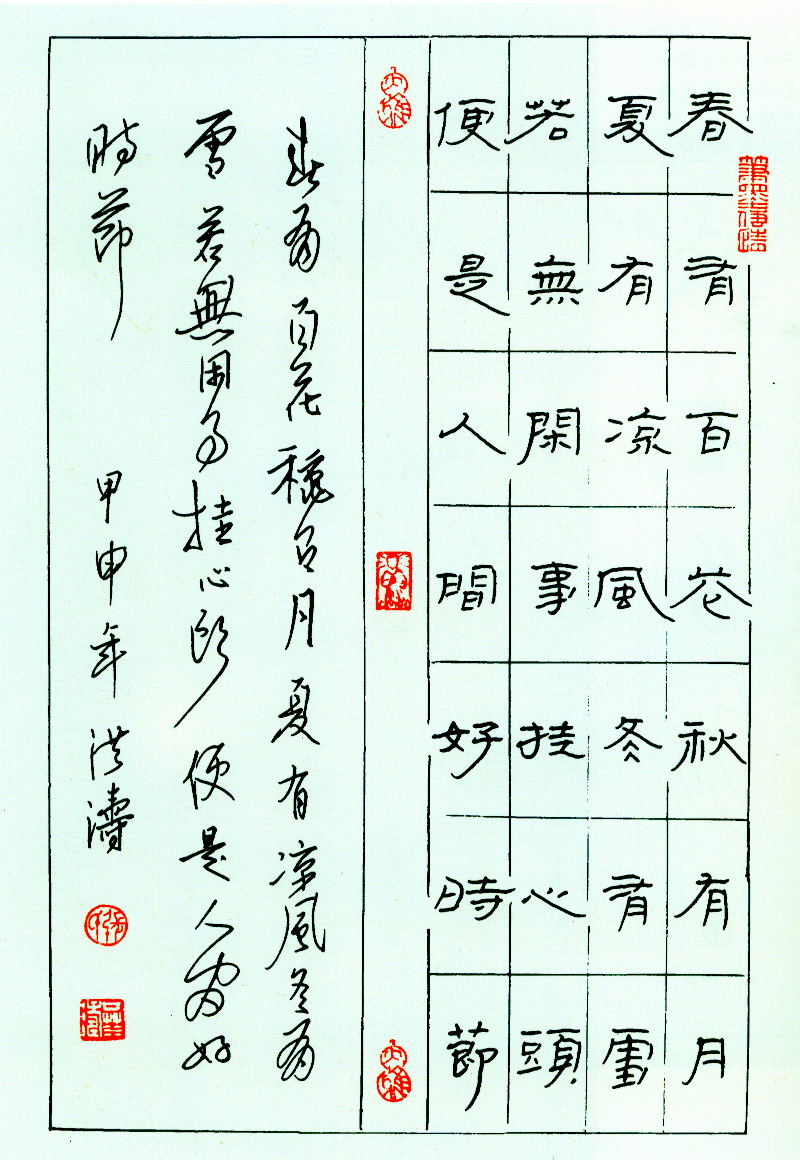 筆墨傳情
春有百花秋有月
夏有凉風冬有雪
若無閑事挂心頭
便是人間好時節
春有百花穐有月夏有凉風冬有
雪若無閑事挂心頭便是人間好
時節 甲申年 洪濤